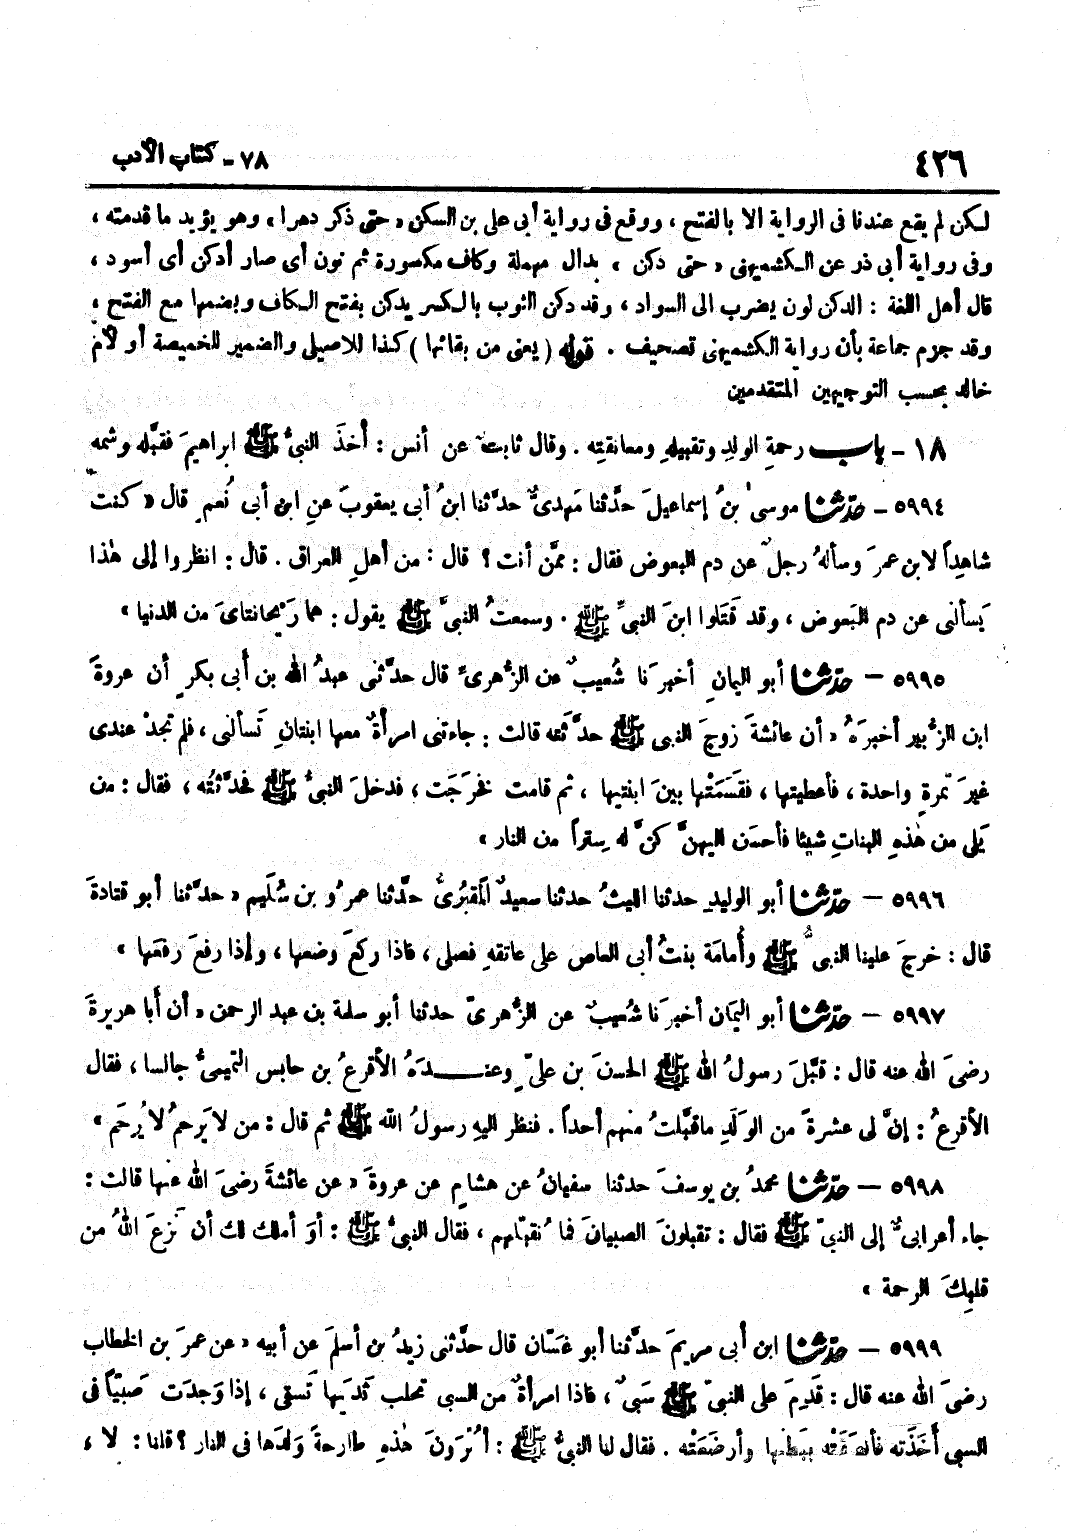 ٤٢٦
٧٨ - كتاب الأدب
لكن لم يقع عندنا فى الرواية الا بالفتح ، ووقع فى رواية أبى على بن السكن « حتى ذكر دهرا » وهو يؤيد ما قدمته ،
وفى رواية أبى ذر عن الكشميهنى « حتى دكن » بدال مهملة وكاف مكسورة ثم نون أى صار أدكن أى أسود ،
قال أهل اللغة : الدكن لون يضرب الى السواد ، وقد دكن الثوب بالكسر يدكن بفتح الكاف وبضمها مع الفتح ،
وقد جزم جماعة بأن رواية الكشميهنى تصحيف . قوله ( يعنى من بقائها ) كذا للاصيلى والضمير للخميصة أو لأم
خالد بحسب التوجيهين المتقدمين
١٨ - باب رحمةِ الولدِ وتقبيلهِ ومعانقتِه . وقال ثابتٌ عن أنس : أخذَ النبىُّ ﷺ ابراهيمَ فقبَّله وشمه
٥٩٩٤ - حدّثنا موسىٰ بنُ إسماعيلَ حدَّثنا مَهدىٌّ حدَّثنا ابنُ أبى يعقوبَ عنِ ابن أبى نُعم قال « كنتُ
شاهِداً لابن عمرَ وسألهُ رجلٌ عن دم البعوض فقال : ممَّن أنت ؟ قال : من أهلِ العراق . قال : انظروا إلى هٰذا
يَسألنى عن دم البَعوض ، وقد قَتَلوا ابنَ النبىِّ ﷺ . وسمعتُ النبىَّ ﷺ يقول : هما رَيحانتاىَ من الدنيا »
٥٩٩٥ - حدّثنا أبو اليمانِ أخبرَنا شُعيبٌ عن الزُّهرىِّ قال حدَّثنى عبدُ الله بن أبى بكرٍ أن عروةَ
ابن الزُّبير أخبرَهُ « أن عائشةَ زوجَ النبى ﷺ حدَّثَته قالت : جاءتنى امرأةٌ معها ابنتانِ تَسألنى ، فلم تجدْ عندى
غيرَ تمرةٍ واحدة ، فأعطيتها ، فقَسَمَتْها بينَ ابنتيها ، ثم قامت فخرَجَت ، فدخلَ النبىُّ ﷺ فحدَّثتُه ، فقال : من
يَلى من هٰذهِ البناتِ شيئا فأحسَن اليهنَّ كنَّ له سِتراً من النار »
٥٩٩٦ - حدّثنا أبو الوليدِ حدثنا الليثُ حدثنا سعيدٌ المَقبُرىُّ حدَّثنا عمرُو بن سُلَيم « حدَّثنا أبو قتادةَ
قال : خرجَ علينا النبىُّ ﷺ وأُمامَة بنتُ أبى العاص على عاتقهِ فصلى ، فاذا ركعَ وضعها ، وإذا رفعَ رفعَها »
٥٩٩٧ - حدّثنا أبو اليمَان أخبرَنا شُعيبٌ عن الزُّهرىّ حدثنا أبو سلمة بن عبد الرحمن « أن أبا هريرةَ
رضىَ الله عنه قال : قبَّلَ رسولُ الله ﷺ الحسنَ بن علىّ وعندَهُ الأقرعُ بن حابس التميمىُّ جالسا ، فقال
الأقرعُ : إنَّ لى عشرةً من الوَلَدِ ماقبَّلتُ منهم أحداً . فنظر اليهِ رسولُ الله ﷺ ثم قال : من لا يَرحمُ لا يُرحَم »
٥٩٩٨ - حدّثنا محمدُ بن يوسفَ حدثنا سفيانُ عن هشامٍ عن عروةَ « عن عائشةَ رضىَ الله عنها قالت :
جاء أعرابىٌّ إلى النبىّ ﷺ فقال : تقبلونَ الصبيانَ فما نُقبّلهم ، فقال النبىُّ ﷺ : أوَ أملك لك أن نَزعَ اللهُ من
قلبِكَ الرحمة »
٥٩٩٩ - حدّثنا ابن أبى مريمَ حدَّثنا أبو غسّان قال حدَّثنى زيدُ بن أسلمَ عن أبيه « عن عمرَ بن الخطاب
رضىَ الله عنه قال : قَدِمَ على النبىّ ﷺ سَبىٌ ، فاذا امرأةٌ من السبى تحلب ثَديَها تَسقى ، إذا وَجدَت صَبيّاً فى
السبى أخَذَته فألصَقَتْه ببَطنها وأرضَعَتْه . فقال لنا النبىُّ ﷺ : أتُرَونَ هٰذهِ طارحةً وَلدَها فى النار ؟ قلنا : لا ،